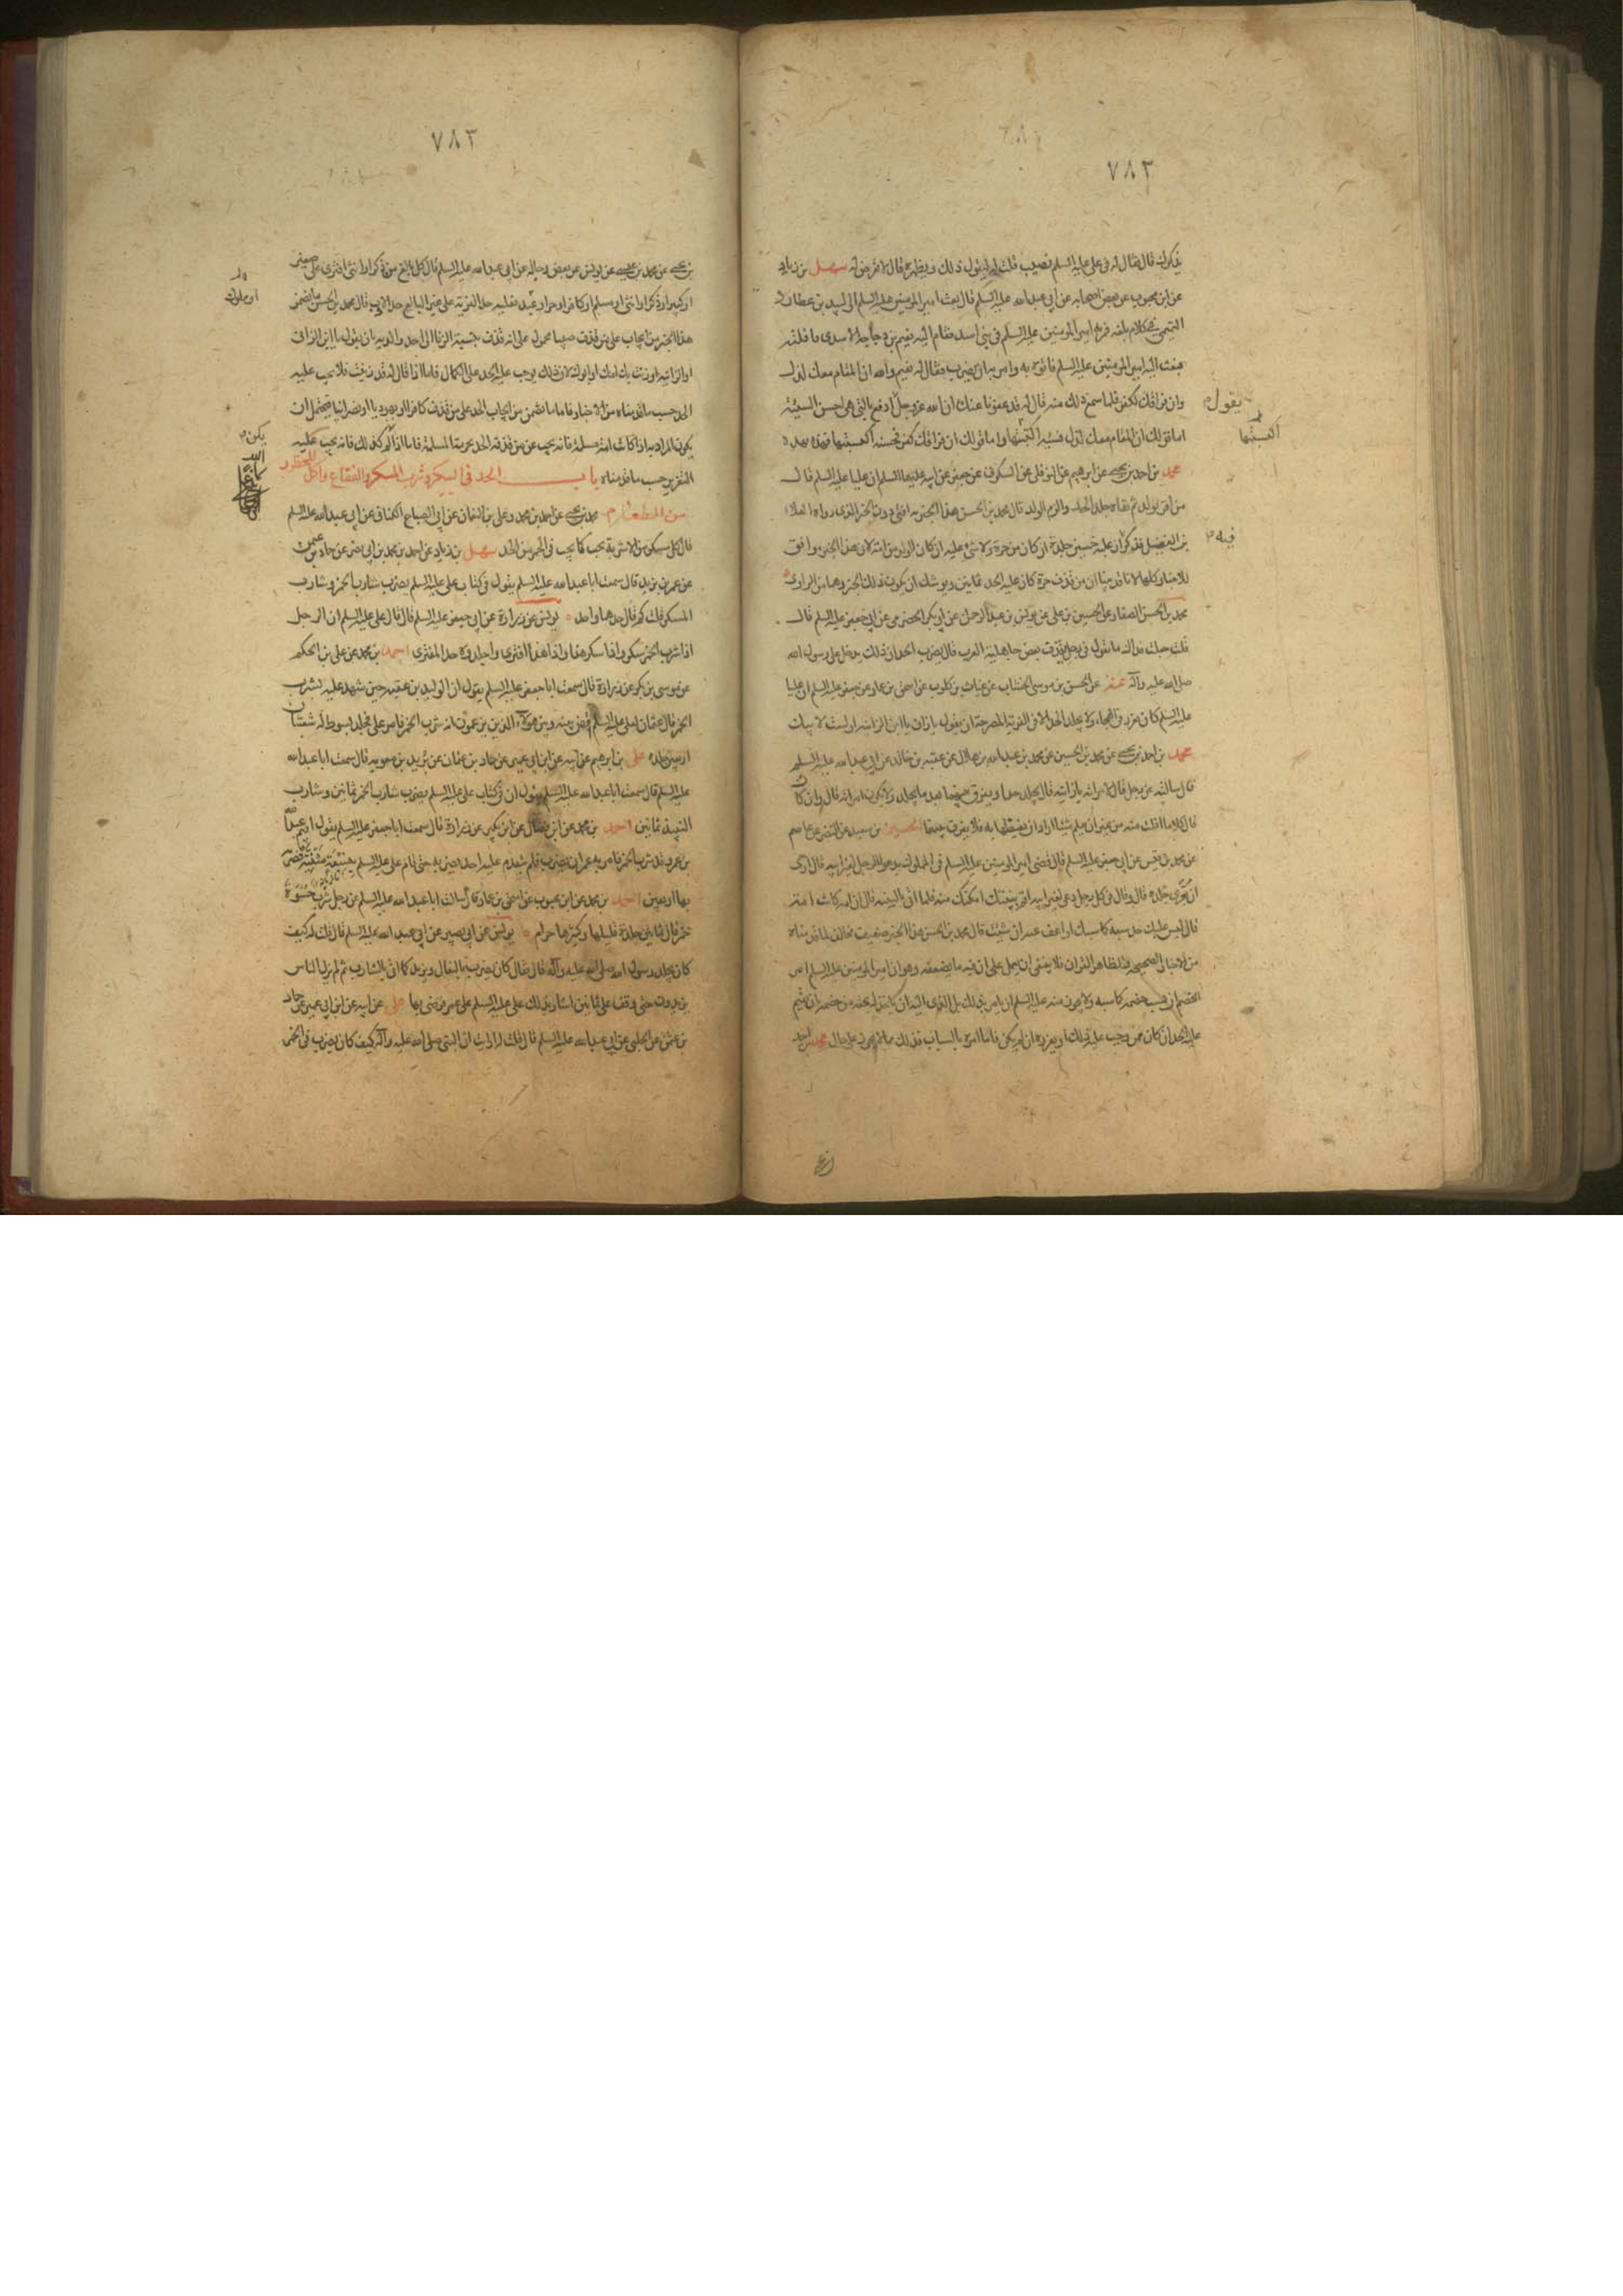 ٧٨٣
يذكرك قال فقال له في علي عليه السلم نصيب قلت له ليقول ذلك ويظهره قال لا تعرض له سهل بن زياد
عن ابن محبوب عن بعض اصحابه عن ابي عبدالله عليه السلم قال بعث امير المومنين عليه السلم الى لبيد بن عطارد
التميمي في كلام بلغه فمر به امير المومنين عليه السلم في بني اسد فقام اليه نعيم بن دجاجة الاسدي فافلته
فبعث اليه امير المومنين عليه السلم فاتوه به وامر به ان يضرب فقال له نعيم والله ان المقام معك لذل
وان فراقك لكفر فلما سمع ذلك منه قال له قد عفونا عنك ان الله عز وجل ادفع بالتي هي احسن السيئة
يقول
اما قولك ان المقام معك لذل فسيئة اكتسبتها واما قولك ان فراقك كفر فحسنة اكتسبتها فهذه بهذه
اكتسبتها
محمد بن احمد بن يحيى عن ابرهيم عن النوفلي عن السكوني عن جعفر عن ابيه عليهما السلم ان عليا عليه السلم قال
من اقر بولد ثم نفاه جلد الحد والزم الولد قال محمد بن الحسن هذا الخبر به افتي دون الخبر الذي رواه العلاء
بن الفضيل فذكر ان عليه خمسين جلدة ان كان من حرة ولا شيء عليه ان كان الولد من امة لان هذا الخبر موافق
فيه
للاخبار كلها لانا قد بينا ان من قذف حرة كان عليه الحد ثمانين ويوشك ان يكون ذلك الخبر وهما من الراوي
محمد بن الحسن الصفار عن الحسين بن علي عن يونس بن عبد الرحمن عن ابي بكر الحضرمي عن ابي جعفر عليه السلم قال
قلت جعلت فداك ما تقول في رجل يقذف بعض جاهلية العرب قال يضرب الحد ان ذلك يدخل على رسول الله
صلى الله عليه وآله عنه عن الحسن بن موسى الخشاب عن غياث بن كلوب عن اسحق بن عمار عن جعفر عليه السلم ان عليا
عليه السلم كان يعزر في الهجاء ولا يجلد الحد الا في الفرية المصرحة ان يقول يا زان يا ابن الزانية او لست لابيك
محمد بن احمد بن يحيى عن محمد بن الحسين عن محمد بن عبدالله بن هلال عن عقبة بن خالد عن ابي عبدالله عليه السلم
قال سالته عن رجل قال لامراته يا زانية قال يجلد حدا ويفرق بينهما بعد ما يجلد ولا تكون امراته قال وان كان
قال كلاما افلت منه من غير ان يعلم شيئا اراد ان يغيظها به فلا يفرق بينهما الحسين بن سعيد عن النضر عن عاصم
عن محمد بن قيس عن ابي جعفر عليه السلم قال قضى امير المومنين عليه السلم في المملوك يدعو الرجل لغير ابيه قال ارى
ان يعرى جلده قال وقال في كل رجل دعي لغير ابيه اقم بينتك امكنك منه فلما اتى بالبينة قال ان امه كانت امة
قال ليس عليك حد سبه كما سبك او اعف عنه ان شئت قال محمد بن الحسن هذا الخبر ضعيف مخالف لما قدمناه
من الاخبار الصحيحة ولظاهر القران فلا ينبغي ان يعمل على ان فيه ما يضعفه وهو ان امير المومنين عليه السلم امر
الخصم ان يسب خصمه كما سبه ولا يجوز منه عليه السلم ان يامر بذلك بل الذي اليه ان ياخذ له بحقه من خصمه ان يقيم
عليه الحد ان كان ممن وجب عليه ذلك او يعزره ان لم يكن فاما امره بالسباب فذلك مما لا يجوز على حال محمد بن احمد
٧٨٣
بن يحيى عن محمد بن عيسى عن يونس عن بعض رجاله عن ابي عبدالله عليه السلم قال كل بالغ من ذكر او انثى افترى على صغير
او كبير او ذكر او انثى او مسلم او كافر او حر او عبد فعليه حد الفرية وعلى غير البالغ حد الادب قال محمد بن الحسن ما تضمن
او مملوك
هذا الخبر من ايجاب على من قذف صبيا محمول على انه قذف بنسبة الزنا الى احد والديه بان يقول يا ابن الزاني
او الزانية او زنت بك امك او ابوك لان ذلك يوجب عليه الحد على الكمال فاما اذا قال له قد زنيت فلا يجب عليه
الحد حسب ما قدمناه من الاخبار فاما ما تضمن من ايجاب الحد على من قذف كافرا او يهوديا او نصرانيا فيحتمل ان
يكون المراد به اذا كانت امه مسلمة فانه يجب على من قذفه الحد بحرمة المسلمة فاما اذا لم يكن كذلك فانه يجب عليه
يكن
التعزير حسب ما قدمناه باب الحد في السكر وشرب المسكر والفقاع واكل المحظور
من الطعام محمد بن يحيى عن احمد بن محمد وعلي بن النعمان عن ابي الصباح الكناني عن ابي عبدالله عليه السلم
قال كل مسكر من الاشربة يجب كما يجب في الخمر من الحد سهل بن زياد عن احمد بن محمد بن ابي نصر عن حماد بن عيسى
عن عمر بن يزيد قال سمعت ابا عبدالله عليه السلم يقول في كتاب علي عليه السلم يضرب شارب الخمر وشارب
المسكر قلت كم قال حدهما واحد يونس عن زرارة عن ابي جعفر عليه السلم قال قال علي عليه السلم ان الرجل
اذا شرب الخمر سكر واذا سكر هذى واذا هذى افترى واجلدوه حد المفتري احمد بن محمد عن علي بن الحكم
عن موسى بن بكر عن زرارة قال سمعت ابا جعفر عليه السلم يقول ان الوليد بن عقبة حين شهد عليه بشرب
الخمر قال عثمان لعلي عليه السلم اقض بينه وبين هؤلاء الذين يزعمون انه شرب الخمر فامر علي فجلد بسوط له شعبتان
اربعين جلدة علي بن ابرهيم عن ابيه عن ابن ابي عمير عن حماد بن عثمان عن بريد بن معوية قال سمعت ابا عبدالله
عليه السلم قال سمعت ابا عبدالله عليه السلم يقول ان في كتاب علي عليه السلم يضرب شارب الخمر ثمانين وشارب
النبيذ ثمانين احمد بن محمد عن ابن فضال عن ابن بكير عن زرارة قال سمعت ابا جعفر عليه السلم يقول اقيم عبيدالله
بن عمر وقد شرب الخمر فامر به عمر ان يضرب فلم يتقدم عليه احد يضربه حتى قام علي عليه السلم بنسعة مثنية فضربه
بها اربعين احمد بن محمد عن ابن محبوب عن اسحق بن عمار قال سالت ابا عبدالله عليه السلم عن رجل شرب حسوة
خمر قال ثمانين جلدة قليلها وكثيرها حرام يونس عن ابي بصير عن ابي عبدالله عليه السلم قال قلت له كيف
كان يجلد رسول الله صلى الله عليه وآله قال فقال كان يضرب بالنعال ويزيد كلما اتي بالشارب ثم لم يزل الناس
يزيدون حتى وقف على ثمانين اشار بذلك علي عليه السلم على عمر فرضي بها علي عن ابيه عن ابن ابي عمير عن حماد
بن عثمن عن الحلبي عن ابي عبدالله عليه السلم قال قلت له ارايت ان النبي صلى الله عليه وآله كيف كان يضرب في الخمر